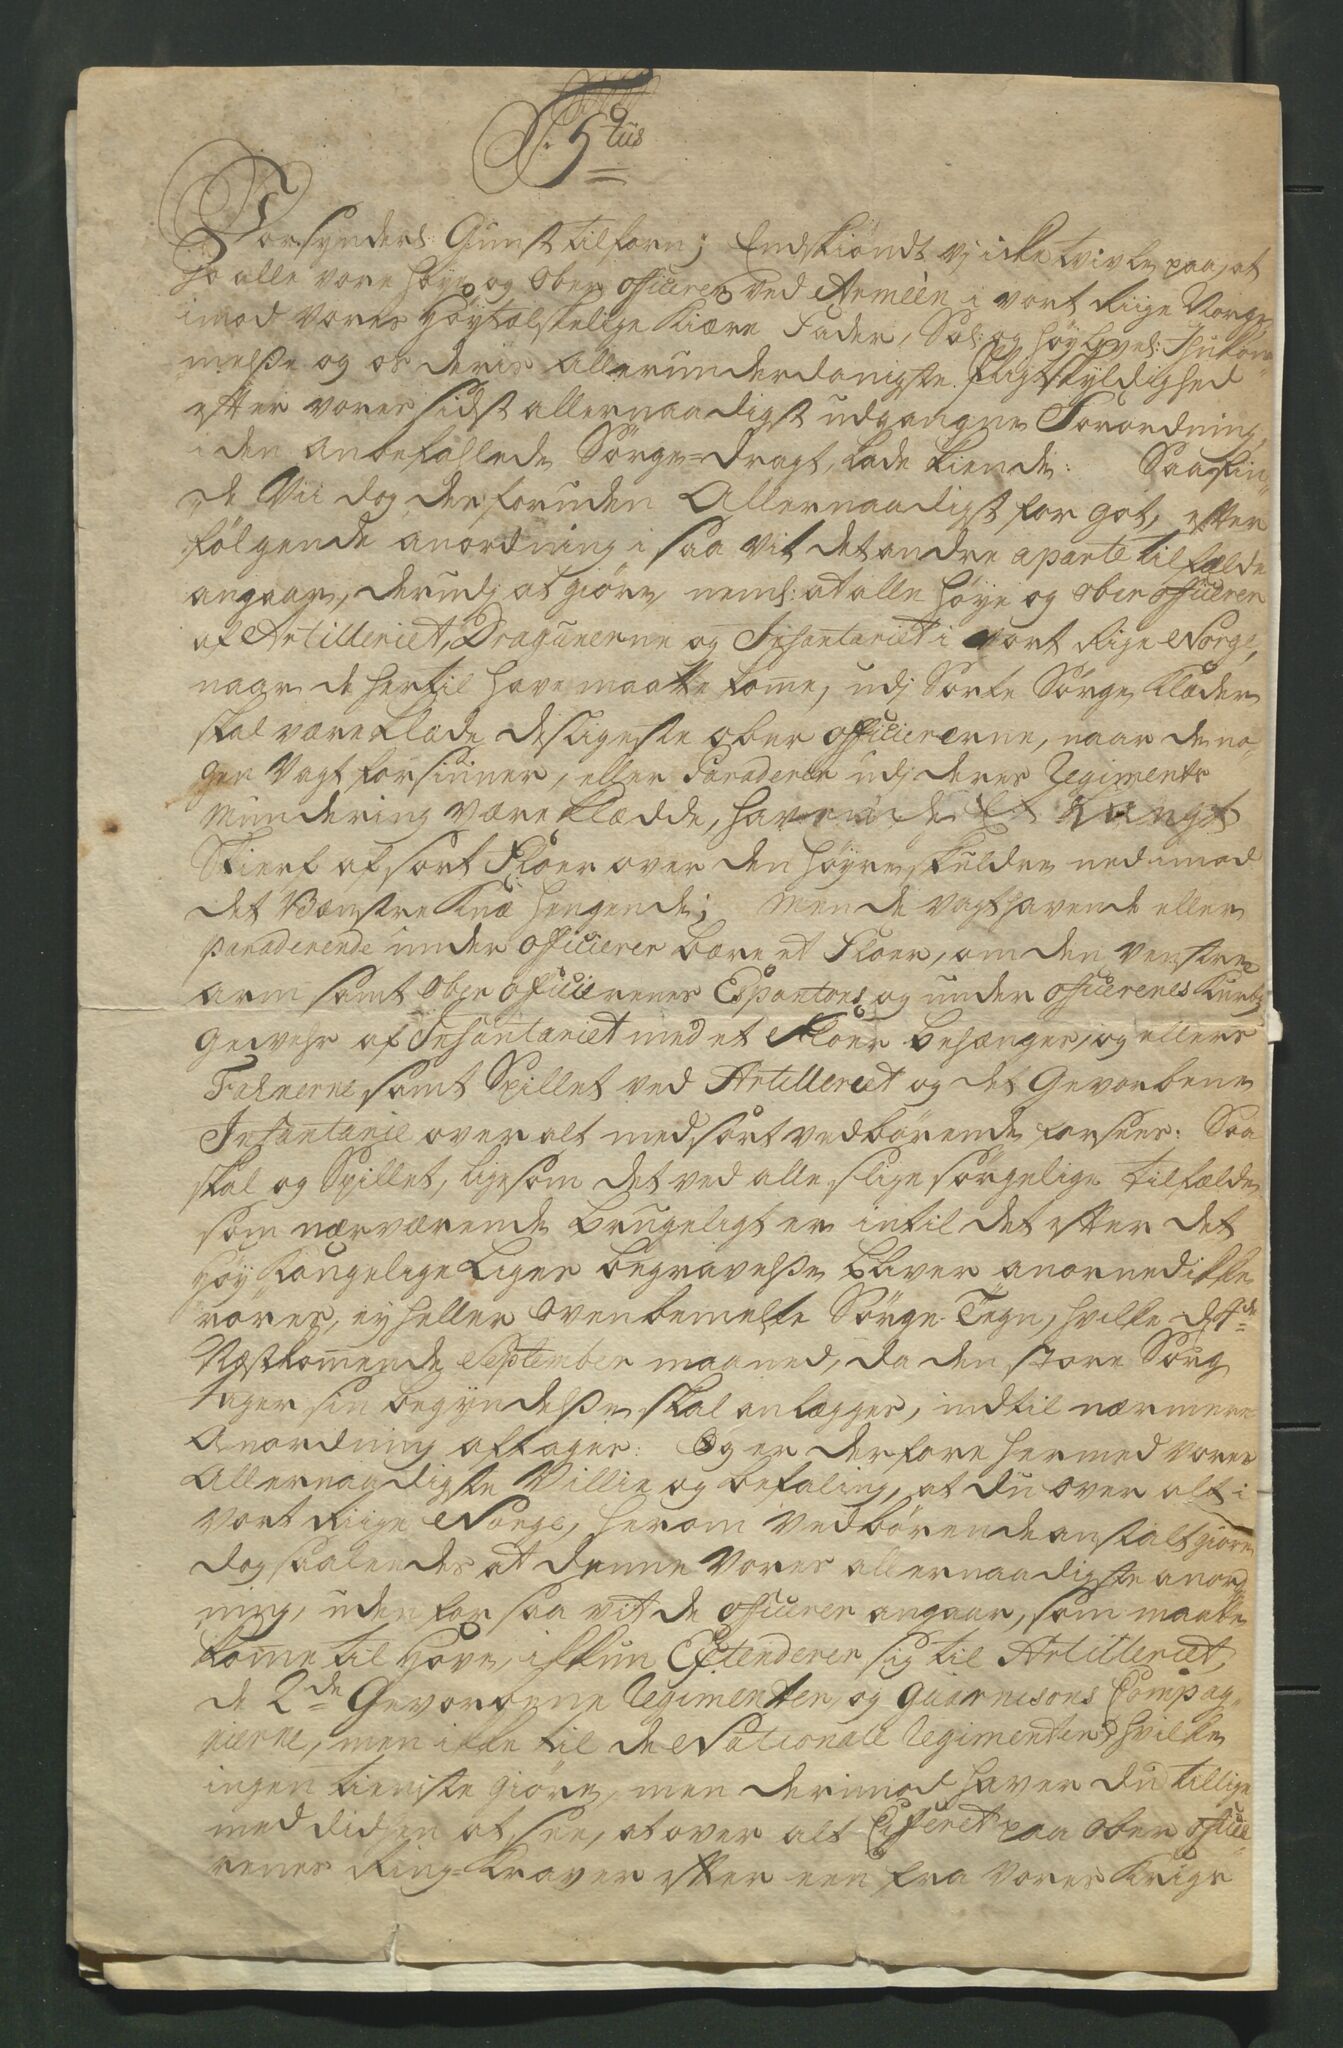 F. 5tus
Vor synderl: Gunst tilforn; Endskiøndt vj icke tvivle paa, at
jo alle vore høye og Ober Officerer ved Armeèn i vort Riige Norge,
imod Vores Høytælskelige Kiære Fader, Sal: og høylovl: Ihukom-
melße og os deris allerunderdanigste Pligtskyldighed
efter vores sidst allernaadigst udgangne Forordning,
i den anbefallede Sørge-dragt, lade kiende: Saa fin-
de Vii dog der foruden Allernaadigst for got, efter
følgende anordning i saa vit det andre aparte tilfælde
angaar, derudj at giøre, neml: at alle høye og Ober Officerer
af Artilleriet, Dragunerne og Infanteriet i vort Rige Norge,
naar de hertil hove maatte komme, udj Sorte Sørge Klæder
skal være klæde, desligeste ober officiererne, naar de no-
gen Vagt forsiuner, eller Paraderer udj deres Regiments
Mundering være klædde, havende et langt
Skierf af sort Floer over den høyre skuldre ned imod
det Vænstre Knæ hengende; men de vagthavende eller
paraderende under officierer bære et Floer, om den venstre
arm samt Ober officierenes Espontons og under officerenes Kurtz
gewehr af Infanteriet med et Floer behænges, og ellers
Fahnerne samt Spillet ved Artilleriet og det Gevorbene
Infanterie over alt med sort vedbørende forsees: Saa
skal og Spillet, ligesom det ved alle slige sørgelige tilfælde
som nærværende brugeligt er intil det efter det
Høy Kongelige Liges begravelße bliver anornedt ikke
røres, ey heller Ovenbemelte Sørge Tegn, hvilke d 4de
Næstkommende September maaned, da den store Sorg
tager sin begyndelße skal anlægges, indtil nærmere
Anordning aftages: Og er derfore hermed vores
Allernaadigste Villie og befaling, at du over alt i
vort Riige Norge, herom vedbørende anstalt giøre,
dog saaledes at denne vores allernaadigste anord
ning, uden for saa vit de officerer angaar, som maatte
komme til Hove, ickun Extenderer sig til Artilleriet,
de 2de Gevorbene Regimenter, og Guarnisons Compag-
nierne, men icke til de Nationale Regimenter, hvilke
ingen tieniste giøre, men derimod haver du tillige
med didhen at see, at over alt Cifferet paa Ober officie
renes Ring-kraver efter een fra vores Krigs